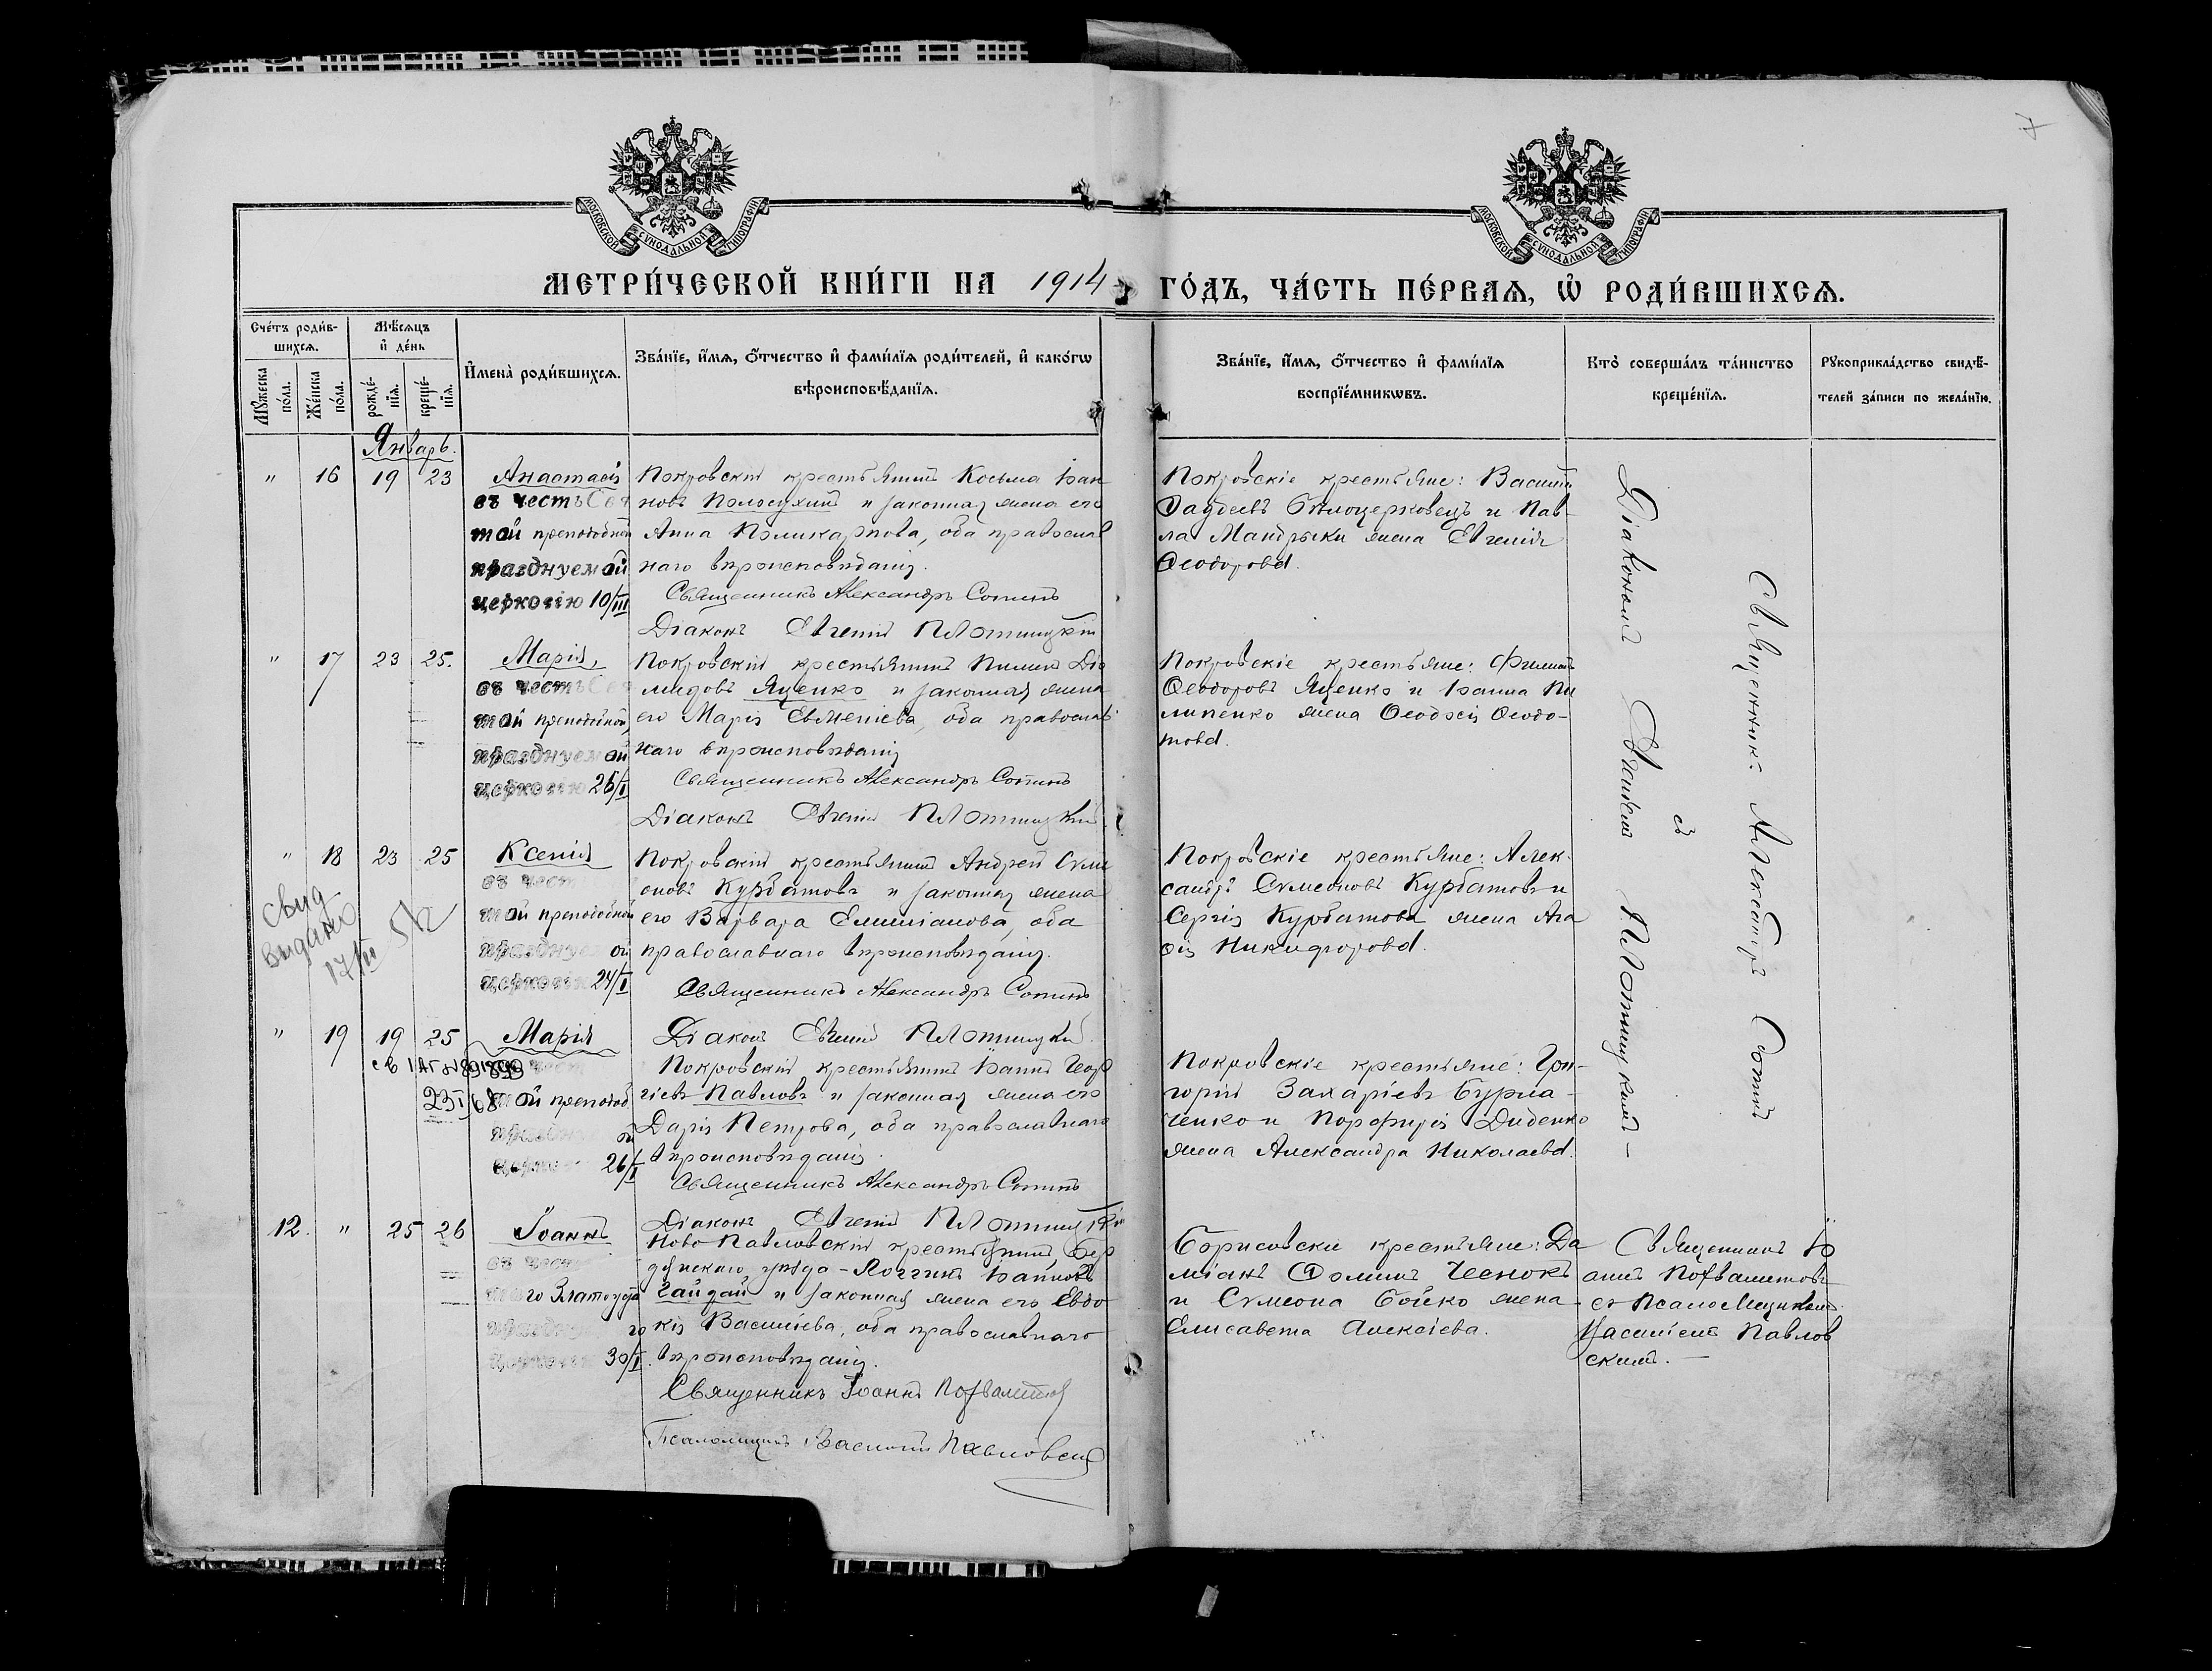 МОСКОВСКОЙ СѴНОДАЛЬНОЙ ТИПОГРАФІИ
МОСКОВСКОЙ СѴНОДАЛЬНОЙ ТИПОГРАФІИ
МЕТРИ́ЧЕСКОЙ КНИ́ГИ НА 1914 ГО́ДЪ, ЧА́СТЬ ПЕ́РВАЯ, Ѡ РОДИ́ВШИХСЯ.
Сче́тъ роди́в-
шихся.
Мꙋ́жеска по́ла.
Же́нска по́ла.
Мѣ́сяцъ
и҆ де́нь
рожде́-
нїя.
креще́-
нїя.
И҆мена̀ роди́вшихся.
Зва́нїе, и҆́мя, ѻ҆́тчество и҆ фами́лїя роди́телей, и҆ како́гѡ
вѣроисповѣ́данїя.
Зва́нїе, и҆́мя, ѻ҆́тчество и҆ фами́лїя
воспрїе́мникѡвъ.
Кто̀ соверша́лъ та́инство
креще́нїя.
Рꙋкоприкла́дство свидѣ́-
телей за́писи по жела́нїю.
Январь.
" 16 19 23
Анастасія
въ честь Свя
той преподобной
празднуемой
церковію 10/III
Покровскій крестьянинъ Косьма Іоан
новъ и законная жена его
Анна Поликарпова, оба православ
наго вѣроисповѣданія.
Священникъ Александръ Сопинъ
Діаконъ Евгеній Плотницкій
Покровскіе крестьяне: Василій
Фаддеевъ Бѣлоцерковецъ и Пав-
ла Мандрыки жена Евгенія
Ѳеодорова.
" 17 23 25.
Марія,
въ честь Свя
той преподобной,
празднуемой
церковію 26/I
Покровскій крестьянинъ Пименъ Діо
мидовъ Яценко и законная жена
его Марія Евменіева, оба православ
наго вѣроисповѣданія
Священникъ Александръ Сопинъ
Діаконъ Евгеній Плотницкій.
Покровскіе крестьяне: Филиппъ
Ѳеодоровъ Яценко и Іоанна Пи
липенко жена Ѳеодосія Ѳеодо-
това.
" 18 23 25
Ксенія
въ чест
той преподобной
празднуе ой
церковію 24/I
Покровскій крестьянинъ Андрей Сѵме
оновъ Курбатовъ и законная жена
его Варвара Емиліанова, оба
православнаго вѣроисповѣданія.
Священникъ Александръ Сопинъ
Діаконъ Евгеній Плотницкій.
Покровскіе крестьяне: Алек-
сандръ Сѵмеоновъ Курбатовъ и
Сергія Курбатова жена Ага
ѳія Никифорова.
Свид
выдано
17/III
" 19 19 25
Марія
23 I 68
той преподоб
ой
26/I
Покровскій крестьянинъ Іоаннъ Геор
гіевъ Павловъ и законная жена его
Дарія Петрова, оба православнаго
вѣроисповѣданія.
Священникъ Александръ Сопинъ
Діаконъ Евгеній Плотницкій
Покровскіе крестьяне: Гри-
горій Захаріевъ Бурла-
ченко и Порфирія Диденко
жена Александра Николаева.
Священникъ Александръ Сопинъ
съ
Діакономъ Евгеніемъ Плотницкимъ —
12. " 25 26
Іоаннъ
въ чест
го Златоуста
го
30/I.
Ново-Павловскій крестьянинъ, Бер
дянскаго уѣзда - Логгинъ Іоанновъ
Гайдай и законная жена его Евдо
кія Василіева, оба православнаго
вѣроисповѣданія.
Священникъ Іоаннъ
Псаломщикъ Василій Павловскій
Борисовскіе крестьяне: Да
міанъ Ѳоминъ Чеснокъ
и Сѵмеона Бойко жена
Елисавета Алексіева.
Священникъ Іо
аннъ
съ Псаломщикомъ
Василіемъ Павлов
скимъ. —